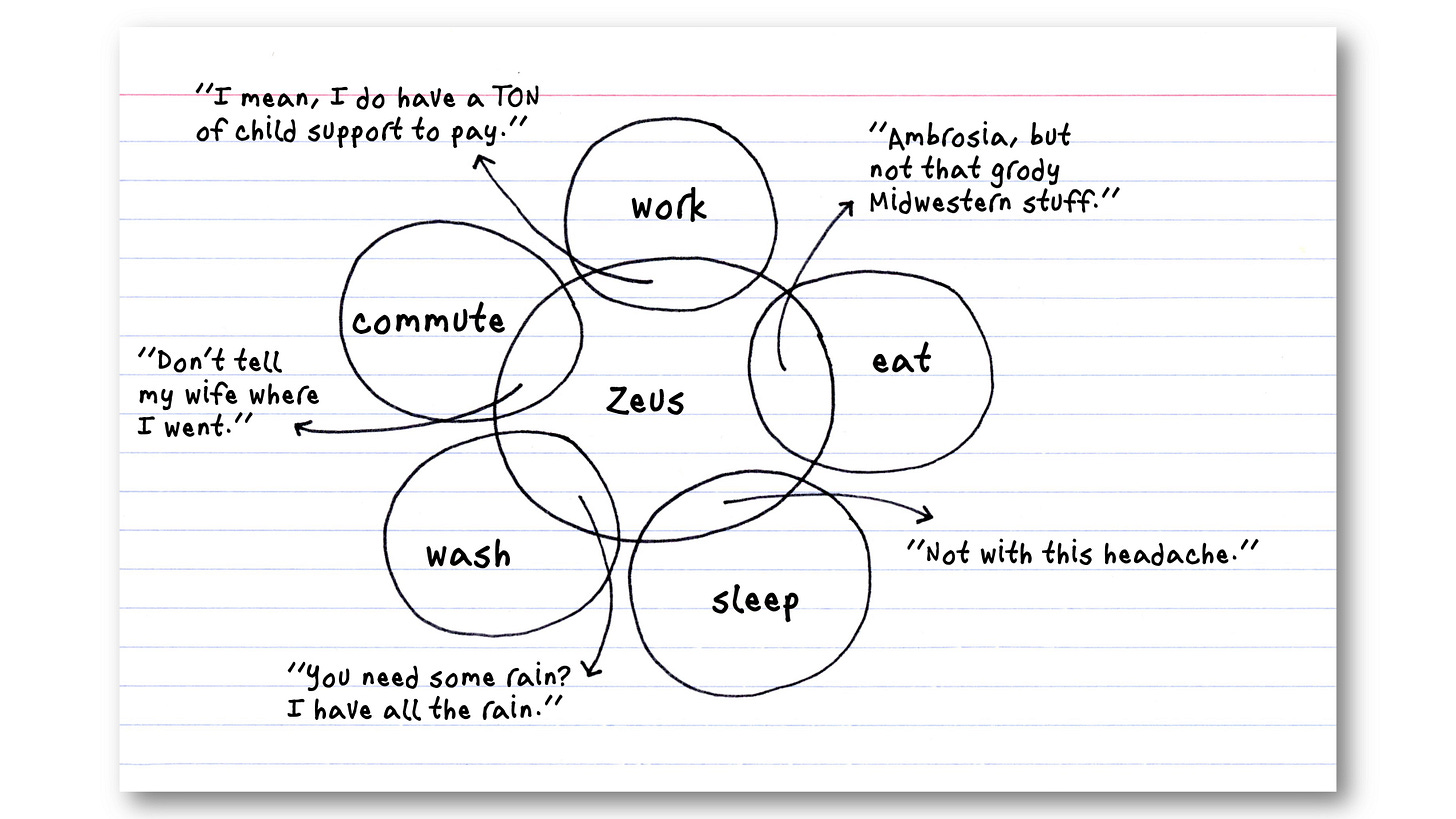 "I mean, I do have a TON
of child support to pay."
work
"Ambrosia, but
not that grody
Midwestern stuff."
commute
eat
"Don't tell
my wife where
I went."
Zeus
wash
sleep
"Not with this headache."
"You need some rain?
I have all the rain."